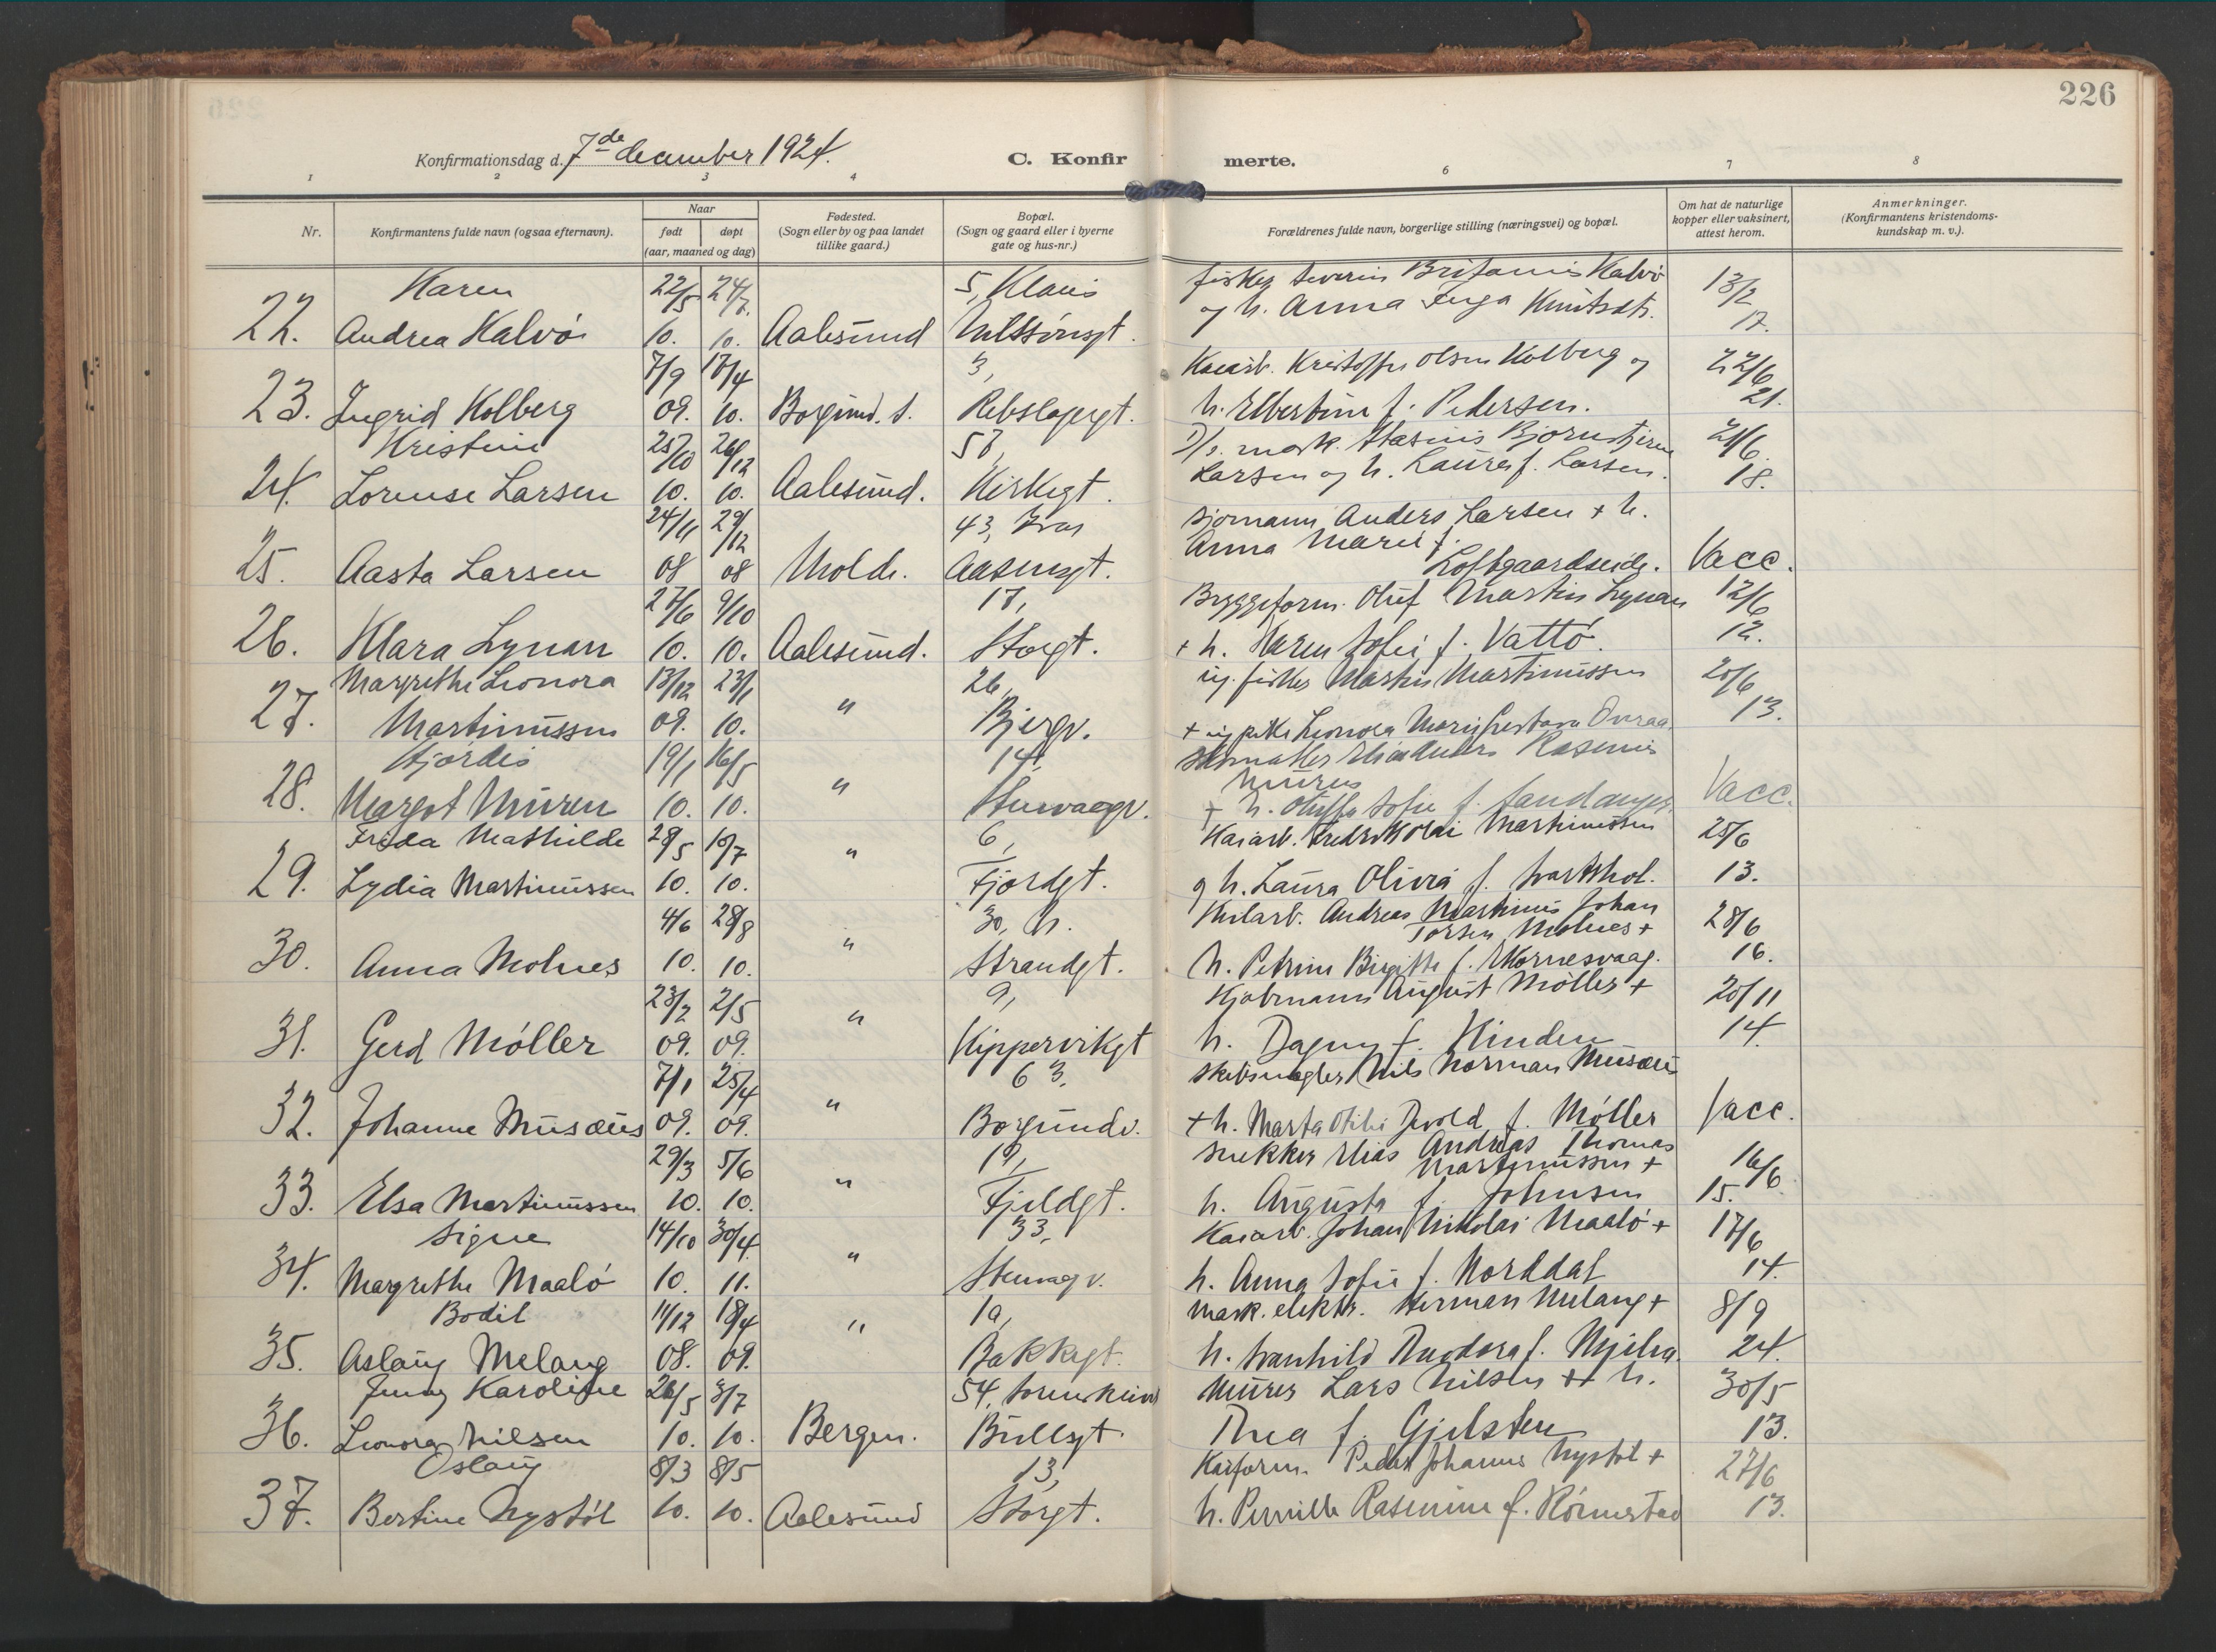 226
Konfirmationsdag d. 7de december 1924.
C. Konfirmerte.
1 2 3 4 6 7 8
Nr.
Konfirmantens fulde navn (ogsaa efternavn).
Naar
født
døpt
(aar, maaned og dag)
Fødested.
(Sogn eller by og paa landet
tillike gaard.)
Bopæl.
(Sogn og gaard eller i byerne
gate og hus-nr.)
Forældrenes fulde navn, borgerlige stilling (næringsvei) og bopæl.
Om hat de naturlige
kopper eller vaksinert,
attest herom.
Anmerkninger.
(Konfirmantens kristendoms-
kundskap m. v.).
Karen 22/5 24/7. 5, Klaus fisker Severin Kalvö 13/2
22. Andrea Kalvö 10. 10. Aalesund og h. Anna Inga Knutsdtr. 17.
7/9 17/4 3, Kaiarb. Kristoffer Olsen Kolberg og 22/6
23. Ingrid Kolberg 09. 10. Borgund. s. Rebslagergt. h. Elbertine f. Pedersen. 21.
Kristine 25/10 26/12 57, D/s. mask. Bjørnstjerne 21/6.
24. Lorense Larsen 10. 10. Aalesund. Kirkegt. Larsen og h. Laura f. Larsen. 18.
24/11 29/12 43, Ivar sjømann Anders Larsen + h.
25. Aasta Larsen 08 08 Molde. Aasensgt. Anna Marie f. Vacc.
27/6 9/10 17, Bryggeform. Oluf Martin Lynan 12/6
26. Klara Lynan 10. 10. Aalesund. Storgt. + h. Karen Sofie f. Vattö. 12.
Margrethe Leonora 13/12 23/1 26, ug. fisker Martin Martinussen 20/6
27. Martinussen 09. 10. " Bjergv. + ug pike Leonora 13.
Hjördis 19/1 16/5 14, Rasmus
28. Margot Muren 10. 10. " Stenvaagv. Muren + h. Sofie f. Vacc.
Frida Mathilde 29/5 10/7 6, Kaiarb. Martinussen 25/6
29. Lydia Martinussen 10. 10. " Fjordgt. g h. Laura Olivia f. 13.
4/6 28/8 30, N. Andreas Martinus Johan 28/6
30. Anna Molnes 10. 10. " Strandgt. Molnes + h. Petrine Birgitte f. 16.
23/2 2/5 9, Kjøbmann August Möller + 20/11
31. Gerd Möller 09. 09. " Kippervikgt h. Dagny f. 14.
7/1 25/4 63. Skibsmegler Nils Norman Musæus
32. Johanne Musæus 09. 09. " Borgundv. + h. Marta Otilie Devold f. Möller Vacc.
29/3 5/6 19, snekker Elias Andreas Thomas 16/6
33. Elsa Martinussen 10. 10. " Fjeldgt. Martinussen + h. Augusta f. Johnsen 15.
Signe 14/10 30/4 33, Kaiarb. Johan Nikolai Maalö + 17/6
34. Margrethe Maalö 10. 11. " Stenvagv. h. Anna Sofie f. Norddal 14.
Bodil 11/12 18/4 1a, mask. elektr. Herman Melang + 8/9
35. Aslaug Melang 08. 09. " Bakkegt. h. Svanhild Theodora f. 24.
Jenny Karoline 26/5 3/7 54, murer Lars Nilsen + h. 30/5
36. Leonora Nilsen 10. 10. Bergen. Bullsgt. Thea f. Gjelsten 13.
Oslaug 8/3 8/5 13, Kaiform. Peder Johannes Nystöl + 27/6
37. Bertine Nystöl 10. 10. Aalesund Storgt. h. Pernille Rasmine f. Rörmestad 13.